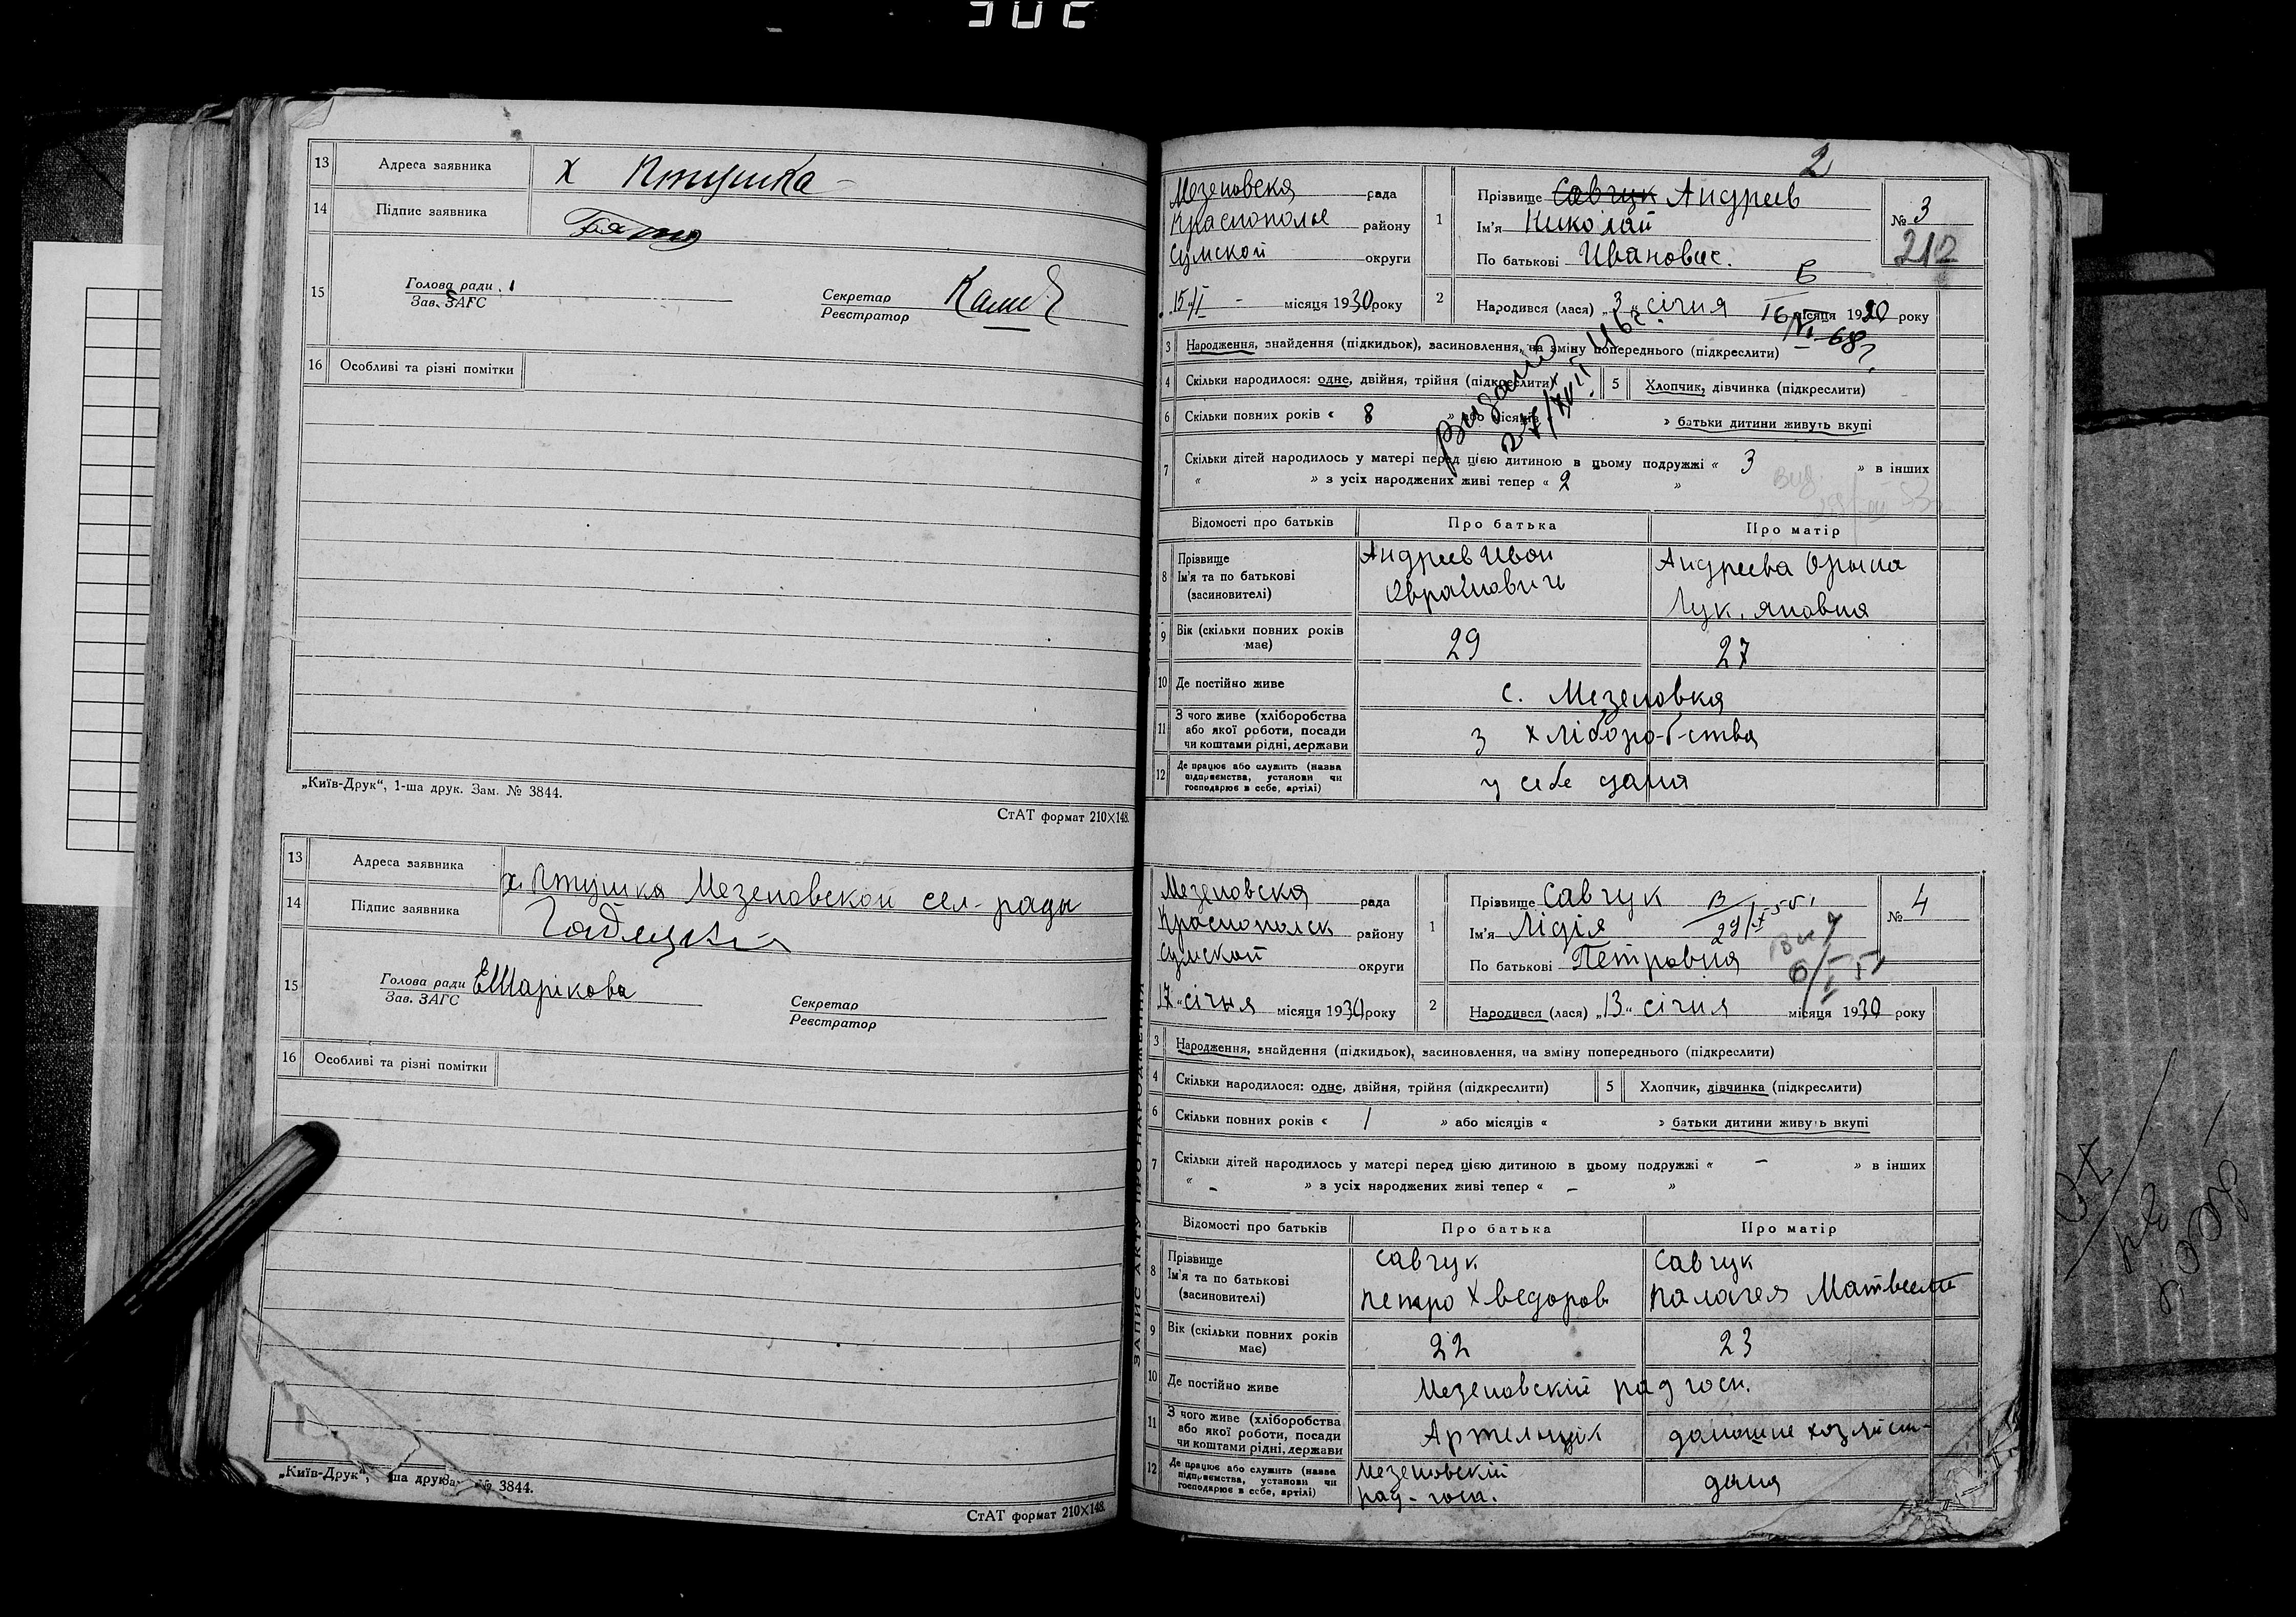 13 Адреса заявника х Птушка
14 Підпис заявника
15 Голова ради
Зав. ЗАГС
Секретар
Реєстратор
16 Особливі та різні помітки
„Київ-Друк“, 1-ша друк. Зам. № 3844.
СтАТ формат 210×148.
13 Адреса заявника х. Птушка Мезеновской сел-рады
14 Підпис заявника
15 Голова ради ЕШарікова
Зав. ЗАГС
Секретар
Реєстратор
16 Особливі та різні помітки
„Київ-Друк“, ша друк № 3844.
СтАТ формат 210×148.
2
Мезеновская рада
Краснополье району
Сумской округи
15/I місяця 1930 року
1 Прізвище Савчук Андреев
Ім'я Николай
По батькові Ивановис.
№ 3
212
2 Народився (лася) „3“ січня місяця 1930 року
3 Народження, знайдення (підкидьок), засиновлення, на зміну попереднього (підкреслити)
4 Скільки народилося: одне, двійня, трійня (підкреслити) 5 Хлопчик, дівчинка (підкреслити)
6 Скільки повних років « 8 » або місяців « » батьки дитини живуть вкупі
7 Скільки дітей народилось у матері перед цією дитиною в цьому подружжі « 3 » в інших
« » з усіх народжених живі тепер « 2 »
Видано
Відомості про батьків Про батька Про матір
8 Прізвище
Ім'я та по батькові
(засиновителі)
Андреев Иван
Андреева Орына
Лук.яновна
9 Вік (скільки повних років має) 29 27
10 Де постійно живе с. Мезеновка
11 З чого живе (хліборобства
або якої роботи, посади
чи коштами рідні, держави
з хліборо-б-ства
12 Де працює або служить (назва
підприємства, установи чи
господарює в себе, артілі)
у себе дома
ЗАПИС АКТУ ПРО НАРОДЖЕННЯ
Мезеновская рада
Краснопольск району
Сумской округи
17 „січня місяця 1930 року
1 Прізвище Савчук
Ім'я Лідія
По батькові Петровна
№ 4
2 Народився (лася) „13“ січня місяця 1930 року
3 Народження, знайдення (підкидьок), засиновлення, на зміну попереднього (підкреслити)
4 Скільки народилося: одне, двійня, трійня (підкреслити) 5 Хлопчик, дівчинка (підкреслити)
6 Скільки повних років « 1 » або місяців « » батьки дитини живуть вкупі
7 Скільки дітей народилось у матері перед цією дитиною в цьому подружжі « – » в інших
« – » з усіх народжених живі тепер « – »
Відомості про батьків Про батька Про матір
8 Прізвище
Ім'я та по батькові
(засиновителі)
Савчук
Петро Хведоров
Савчук
Палагея
9 Вік (скільки повних років має) 22 23
10 Де постійно живе Мезеновскій рад госп.
11 З чого живе (хліборобства
або якої роботи, посади
чи коштами рідні, держави
Артельщик
домашне хозяйст-
12 Де працює або служить (назва
підприємства, установи чи
господарює в себе, артілі)
Мезеновскій
рад-госп.
дома